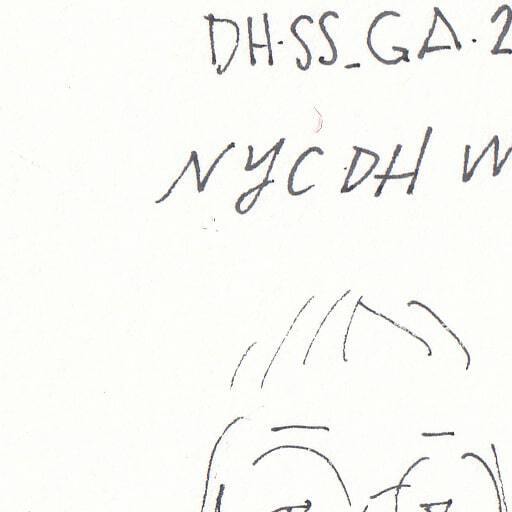 DH.SS_GA.2
NYCDH W